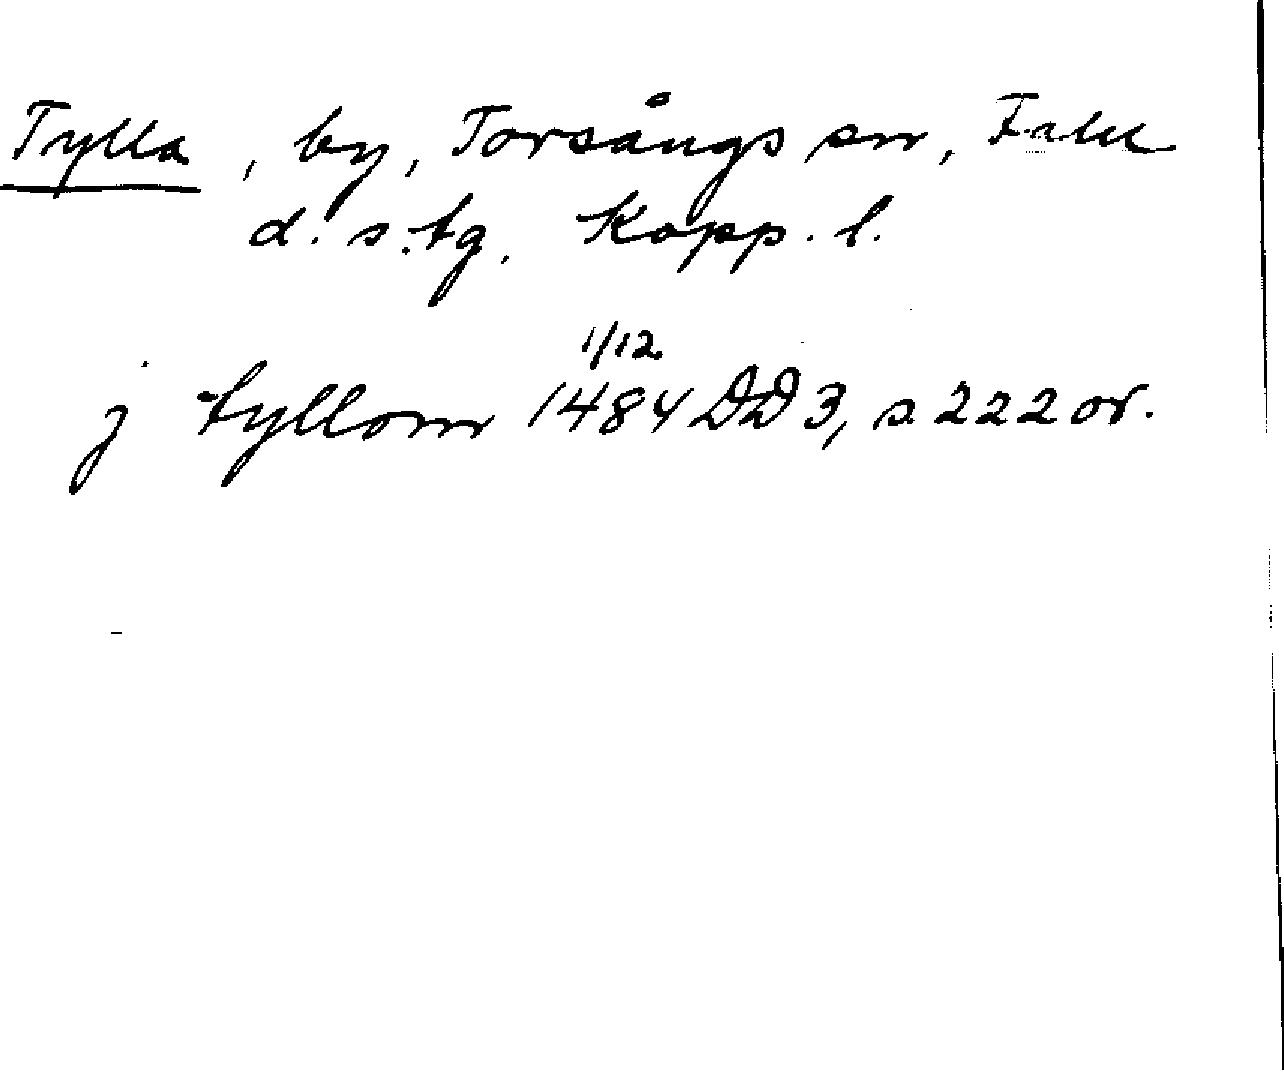 Tylla, by, Torsångs sn, Falu
d. s:tg. Kopp. l.
1/12
j tyllom 1484 DD 3, s 222 or.